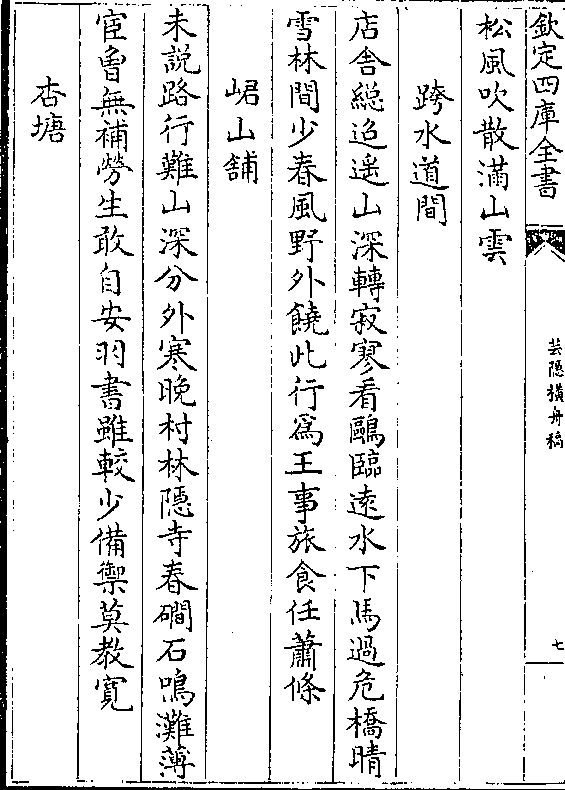 欽定四庫全書
芸隠橫舟稿
七
松風吹散滿山雲
跨水道間
店舎総迢遥山深轉寂寥看鷗臨逺水下馬過危橋晴
雪林間少春風野外饒此行爲王事旅食任蕭條
峮山舖
未説路行難山深分外寒晩村林隠寺春磵石鳴灘薄
宦曽無補勞生敢自安羽書雖較少備禦莫教寛
杏塘